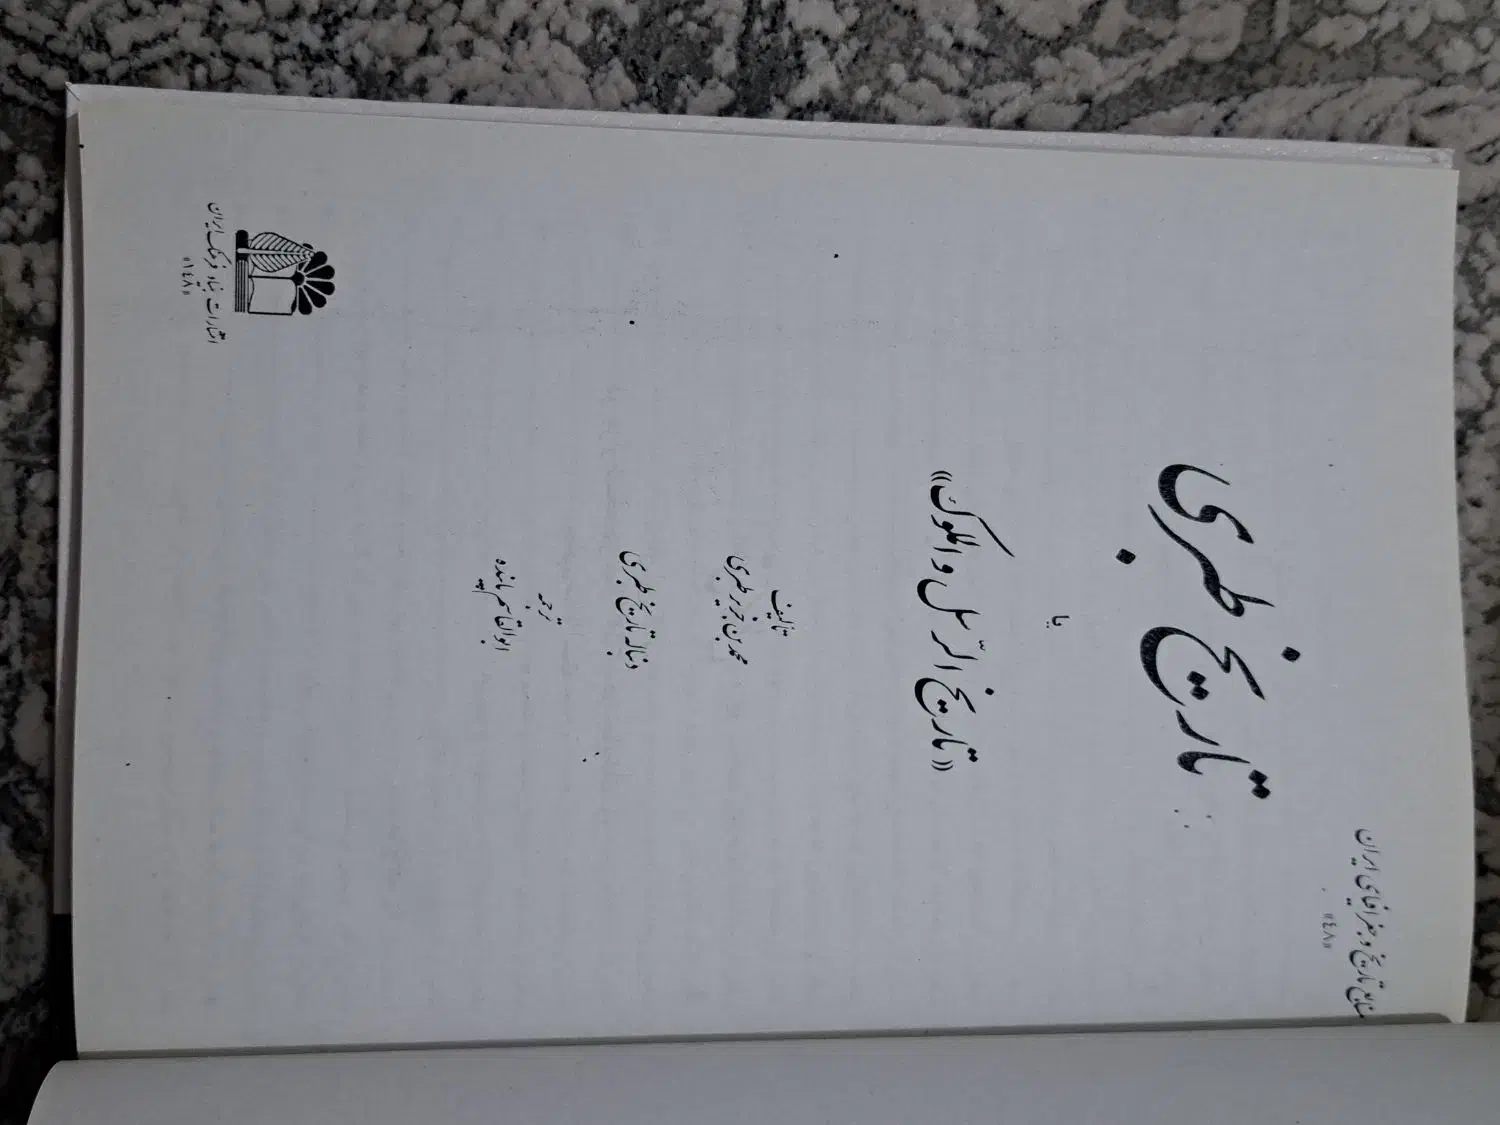 منابع تاریخ و جغرافیای ایران
«۴۸»
تاریخ طبری
یا
«تاریخ الرّسل و الملوک»
تألیف
محمد بن جریر طبری
دنباله تاریخ طبری
ترجمه
ابوالقاسم پاینده
انتشارات بنیاد فرهنگ ایران
«۱۴۸»